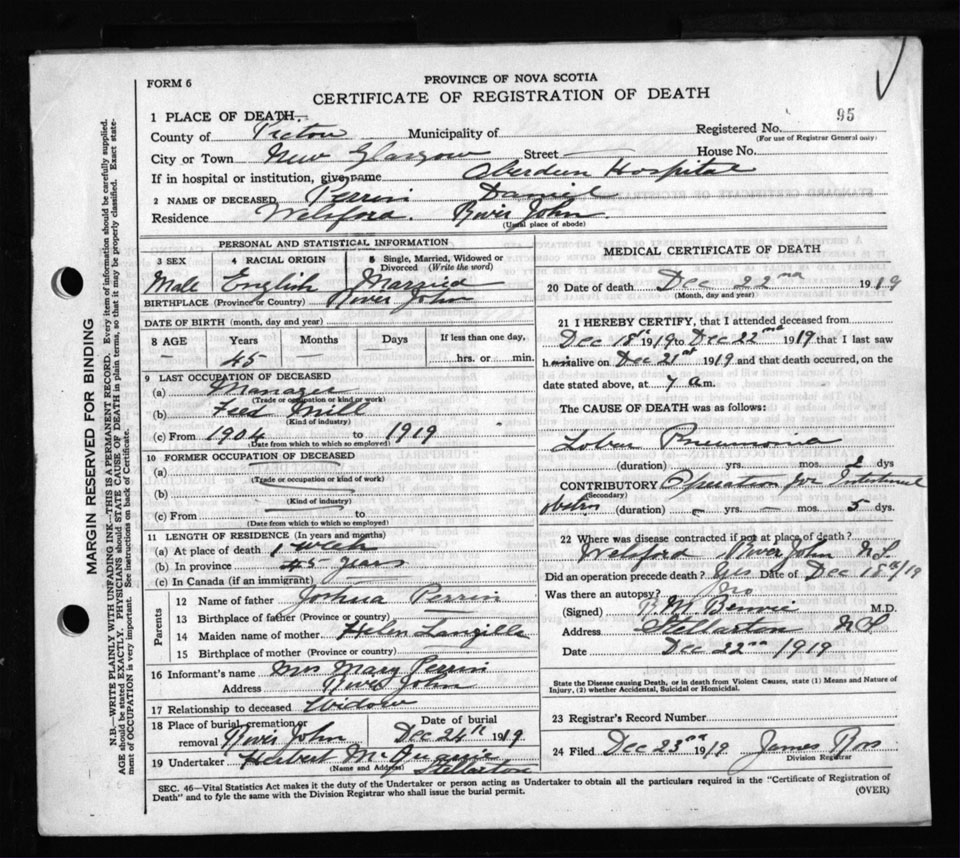 FORM 6
PROVINCE OF NOVA SCOTIA
CERTIFICATE OF REGISTRATION OF DEATH
1 PLACE OF DEATH—
County of Pictou Municipality of Registered No. 95
(For use of Registrar General only)
City or Town New Glasgow Street — House No.
If in hospital or institution, give name Aberdeen Hospital
2 NAME OF DECEASED Perrin Daniel
Residence Welsford. River John.
(Usual place of abode)
PERSONAL AND STATISTICAL INFORMATION
3 SEX 4 RACIAL ORIGIN 5 Single, Married, Widowed or Divorced (Write the word)
Male English Married
BIRTHPLACE (Province or Country) River John
DATE OF BIRTH (month, day and year)
8 AGE Years Months Days If less than one day,
— 45 — hrs. or min.
9 LAST OCCUPATION OF DECEASED
(a) Manager
(Trade or occupation or kind of work)
(b) Feed Mill
(Kind of industry)
(c) From 1904 to 1919
(Date from which to which so employed)
10 FORMER OCCUPATION OF DECEASED
(a)
(Trade or occupation or kind of work)
(b)
(Kind of industry)
(c) From to
(Date from which to which so employed)
11 LENGTH OF RESIDENCE (In years and months)
(a) At place of death 1 week
(b) In province 45 years
(c) In Canada (if an immigrant)
Parents
12 Name of father Joshua Perrin
13 Birthplace of father (Province or country)
14 Maiden name of mother Helen Langille
15 Birthplace of mother (Province or country)
16 Informant's name Mrs Mary Perrin
Address River John
17 Relationship to deceased Widow
18 Place of burial, cremation or removal River John
Date of burial Dec 24th 1919
19 Undertaker Herbert
(Name and Address) Stellarton
MEDICAL CERTIFICATE OF DEATH
20 Date of death Dec 22nd 1919
(Month, day and year)
21 I HEREBY CERTIFY, that I attended deceased from
Dec 18th 1919 to Dec 22nd 1919 that I last saw
him alive on Dec 21st 1919 and that death occurred, on the
date stated above, at 7 am.
The CAUSE OF DEATH was as follows:
Lobar Pneumonia
(duration) — yrs. — mos. 2 dys
CONTRIBUTORY Operation for Intestinal
(Secondary)
obstrn (duration) — yrs. — mos. 5 dys.
22 Where was disease contracted if not at place of death?
Welsford River John N.S.
Did an operation precede death? Yes Date of Dec 18th/19
Was there an autopsy? No
(Signed) Benvie M.D.
Address Stellarton N.S.
Date Dec 22nd 1919
State the Disease causing Death, or in death from Violent Causes, state (1) Means and Nature of
Injury, (2) whether Accidental, Suicidal or Homicidal.
23 Registrar's Record Number
24 Filed Dec 23rd 1919 James Ross
Division Registrar
SEC. 46—Vital Statistics Act makes it the duty of the Undertaker or person acting as Undertaker to obtain all the particulars required in the "Certificate of Registration of
Death" and to fyle the same with the Division Registrar who shall issue the burial permit.
(OVER)
MARGIN RESERVED FOR BINDING
N.B.—WRITE PLAINLY WITH UNFADING INK—THIS IS A PERMANENT RECORD. Every item of information should be carefully supplied.
AGE should be stated EXACTLY. PHYSICIANS should STATE CAUSE OF DEATH in plain terms, so that it may be properly classified. Exact state-
ment of OCCUPATION is very important. See instructions on back of Certificate.